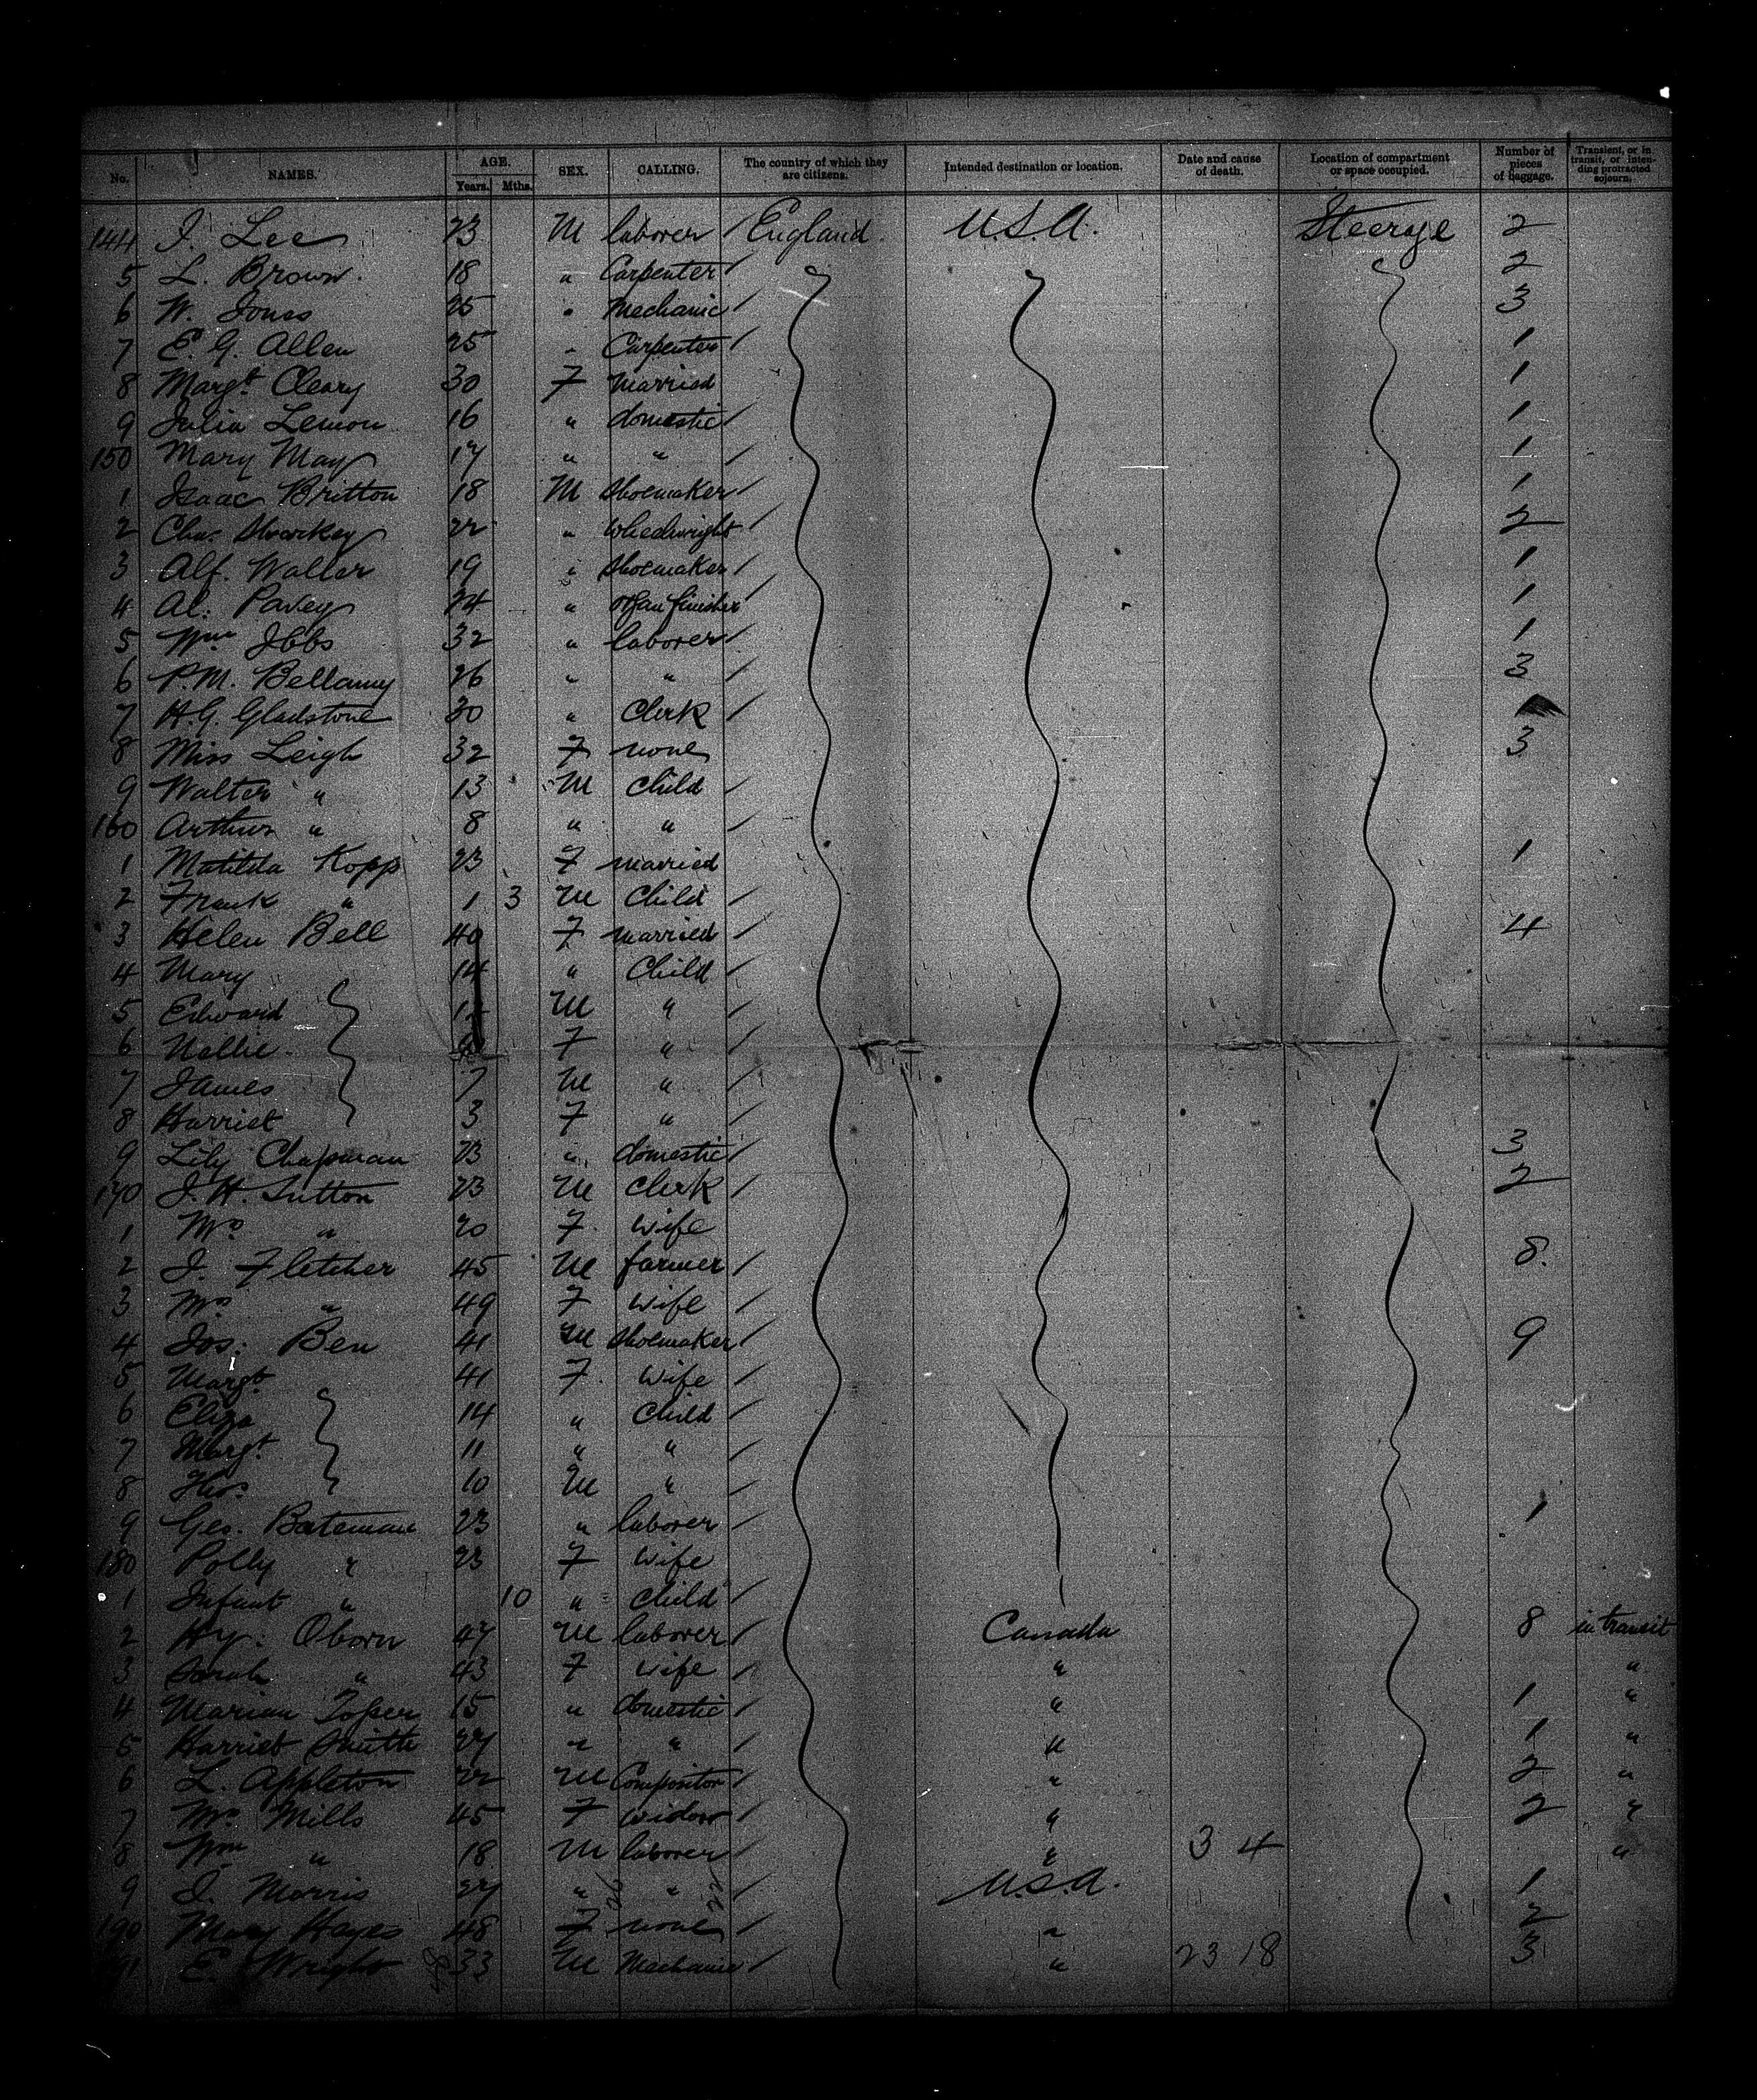 No. NAMES. AGE. Years. Mths. SEX. CALLING. The country of which they are citizens. Intended destination or location. Date and cause of death. Location of compartment or space occupied. Number of pieces of baggage. Transient, or in transit, or intending protracted sojourn.
144 J. Lee 23 M laborer England U.S.A. Steerage 2
5 L. Brown 18 " Carpenter 2
6 W. Jones 25 " Mechanic 3
7 E. G. Allen 25 " Carpenter 1
8 Margt. Cleary 30 F Married 1
9 Julia Lemon 16 " domestic 1
150 Mary May 17 " " 1
1 Isaac Britton 18 M Shoemaker 1
2 Chas. 22 " Wheelwright 2
3 Alf. Waller 19 " Shoemaker 1
4 Al. Pavey 24 " finisher 1
5 Wm Ibbs 32 " laborer 1
6 P.M. Bellamy 26 " " 3
7 H.G. Gladstone 30 " Clerk
8 Miss Leigh 32 F none 3
9 Walter " 13 M Child
160 Arthur " 8 " "
1 Matilda Kopp 23 F married 1
2 Frank " 1 3 M Child
3 Helen Bell 40 F married 4
4 Mary 14 " Child
5 Edward M "
6 Nellie F "
7 James 7 M "
8 Harriet 3 F "
9 Lily Chapman 23 " domestic 3
170 J. H. Sutton 23 M Clerk 2
1 Mrs " 20 F. Wife
2 J. Fletcher 45 M farmer 8.
3 Mrs " 49 F Wife
4 Jos: Ben 41 M Shoemaker 9
5 Margt. 41 F. Wife
6 Eliza 14 " Child
7 Margt. 11 " "
8 Thos. 10 M "
9 Geo. Bateman 23 " laborer 1
180 Polly " 23 F Wife
1 Infant " 10 " Child
2 Hy: Oborn 47 M laborer Canada 8 in transit
3 Sarah " 43 F Wife " "
4 Marian Toper 15 " domestic " 1 "
5 Harriet Smith 27 " " " 1 "
6 L. Appleton 22 M Compositor " 2 "
7 Mrs Mills 45 F widow " 2 "
8 Wm " 18 M laborer " 3 4 "
9 J. Morris 27 " " U.S.A. 1
190 Mary Hayes 48 F none " 2
191 E. Wright 33 M Mechanic " 23 18 3